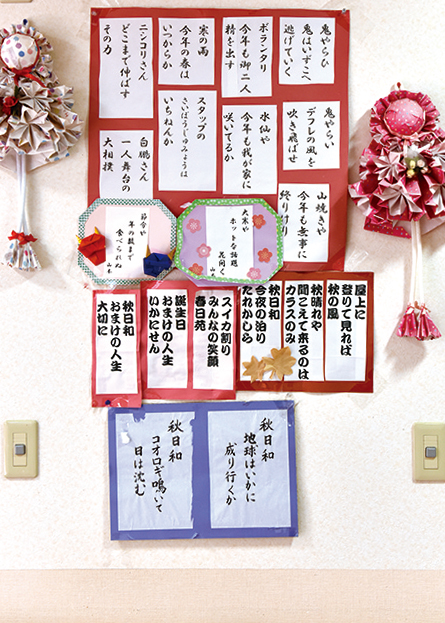 鬼やらひ
鬼はいずこへ
逃げていく
ボランタリ
今年も御二人
精を出す
寒の雨
今年の春は
いつからか
ニシコリさん
どこまで伸ばす
その力
鬼やらい
デフレの風を
吹き飛ばせ
水仙や
今年も我が家に
咲いてるか
スタップの
さいぼうしゅみょうは
いちねんか
白鵬さん
一人舞台の
大相撲
山焼きや
今年も無事に
終りけり
大寒や
ホットな話題
花開く
節分や
年の数まで
食べられぬ
屋上に
登りて見れば
秋の風
秋晴れや
聞こえて来るのは
カラスのみ
秋日和
今夜の泊り
だれかしら
スイカ割り
みんなの笑顔
春日苑
誕生日
おまけの人生
いかにせん
秋日和
おまけの人生
大切に
秋日和
地球はいかに
成り行くか
秋日和
コオロギ鳴いて
日は沈む